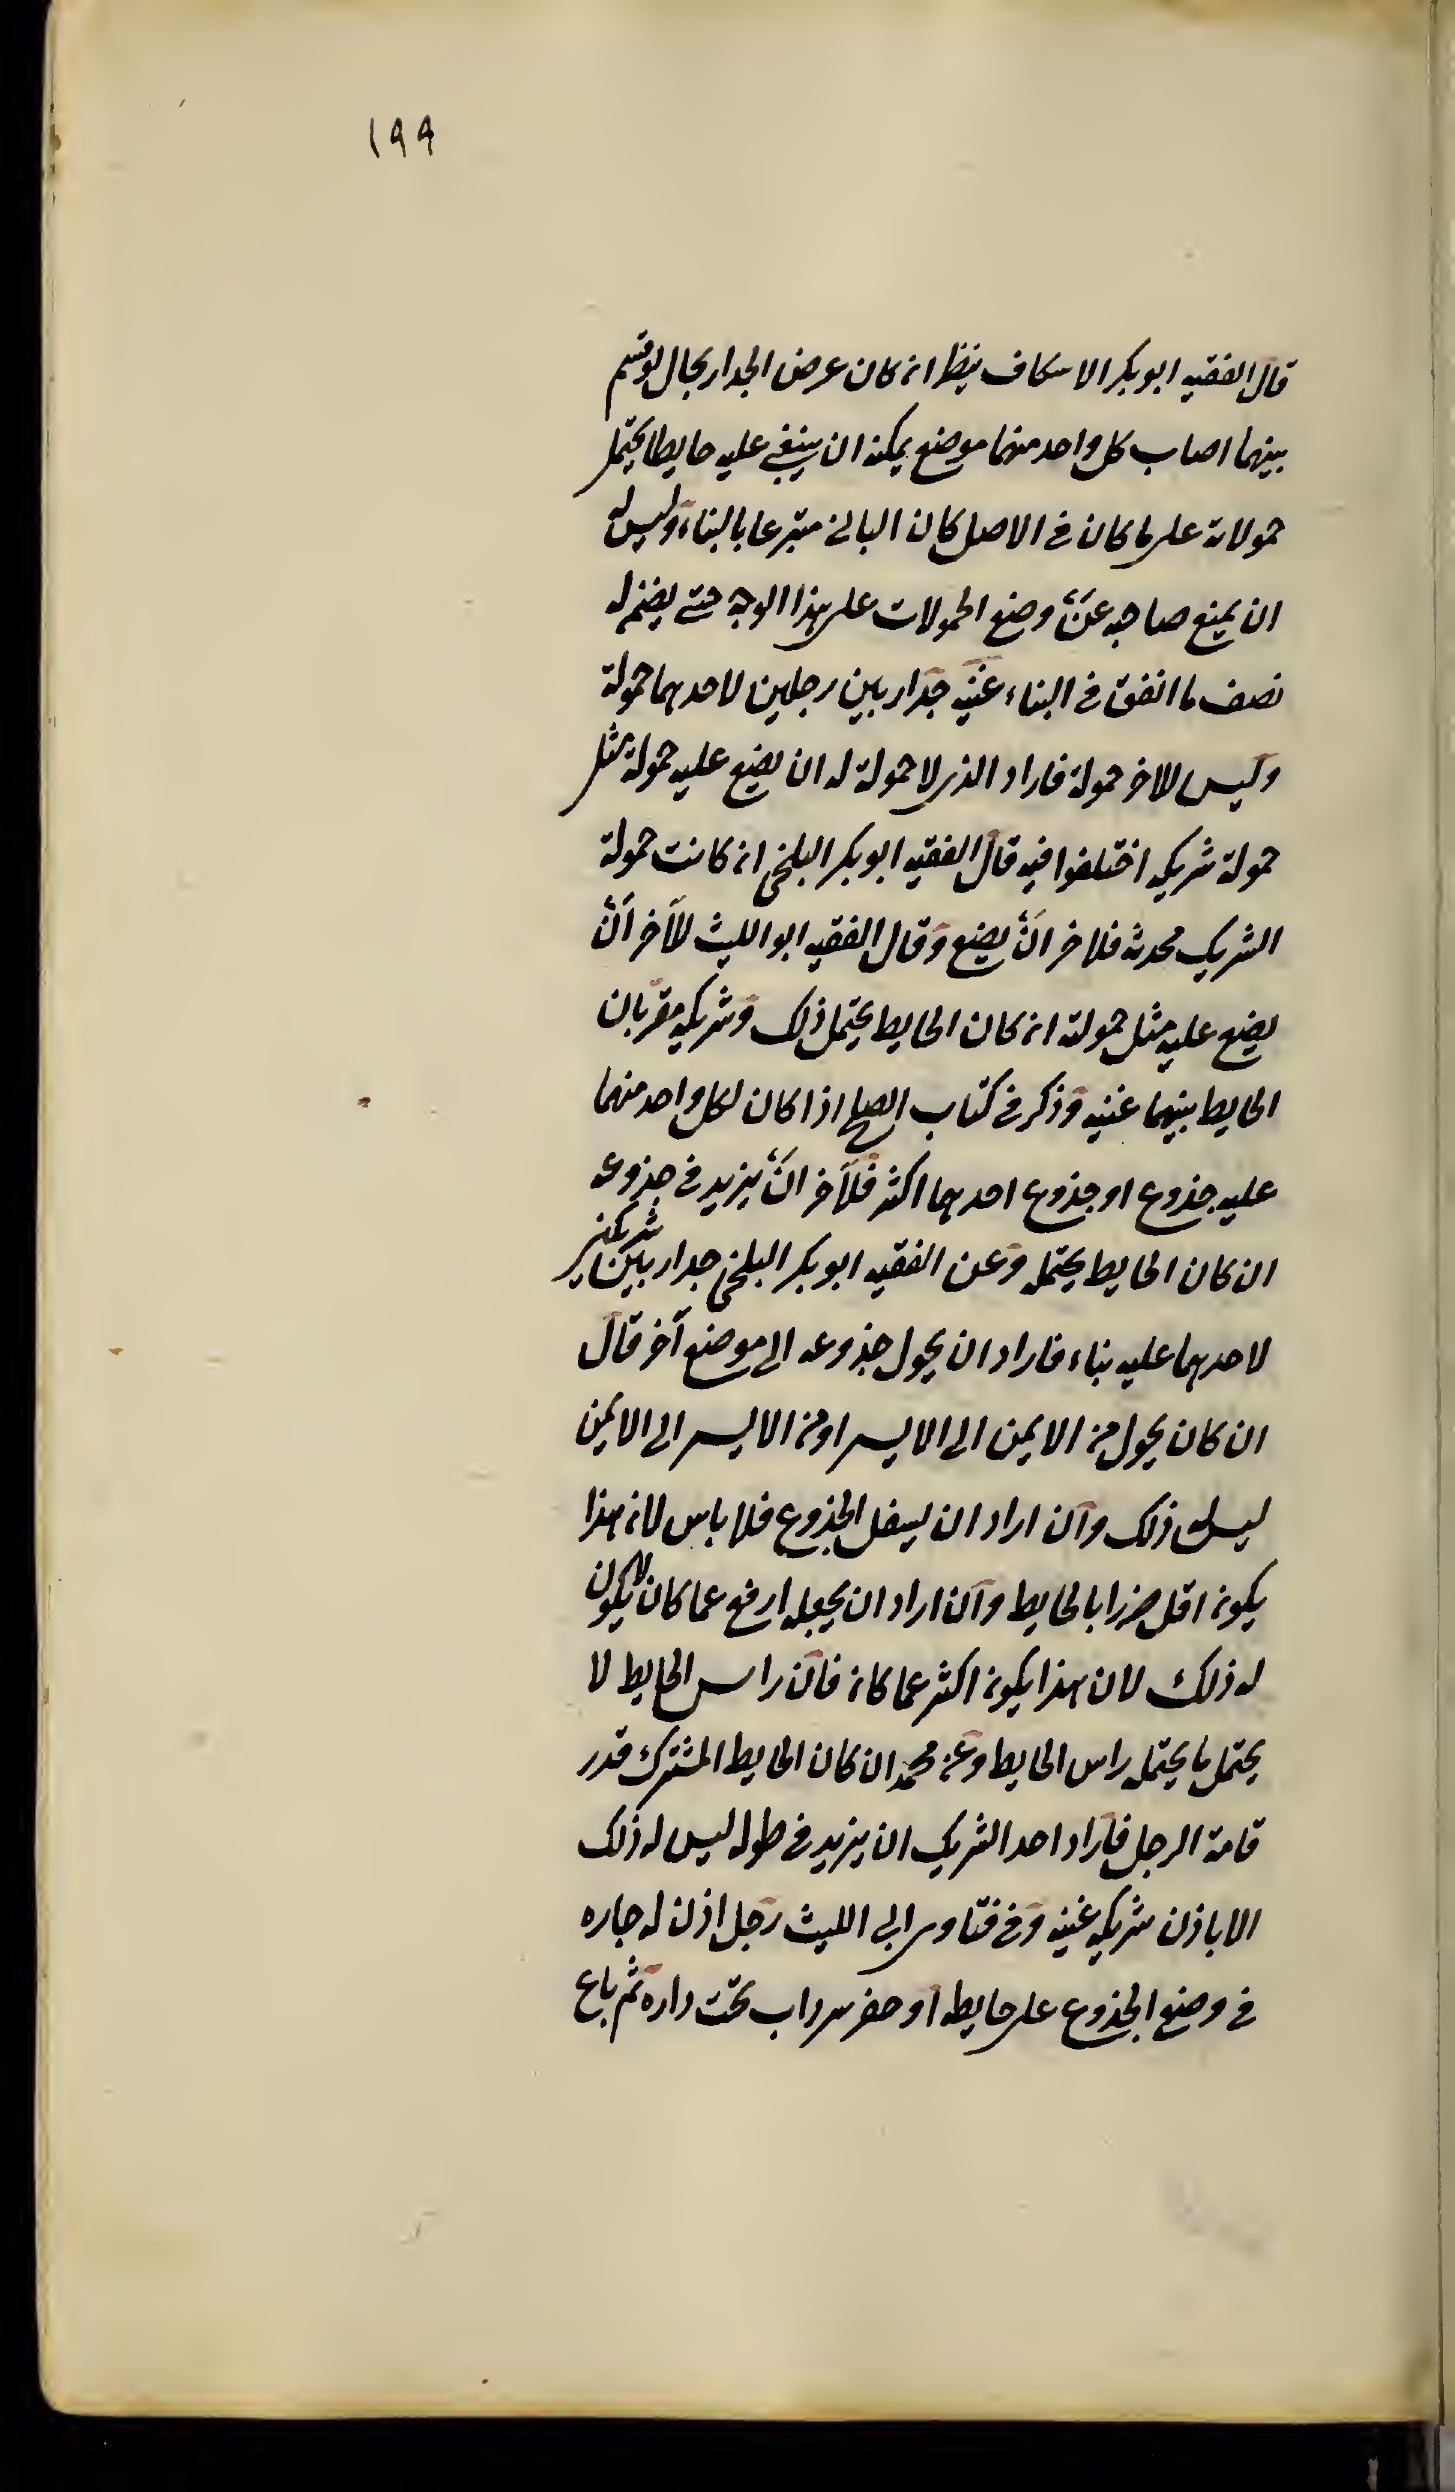 ١٩٩
قال الفقيه ابو بكر الاسكاف ينظر ان كان عرض الجدار بحال لو قسم
بينهما اصاب كل واحد منهما موضع يمكنه ان يبنى عليه حايطا يحتمل
حمولاته على ما كان فى الاصل كان البانى متبرعا بالبناء وليس له
ان يمنع صاحبه عن وضع الحمولات على هذا الوجه حتى يضمن له
نصف ما انفق فى البناء غنيه جدار بين رجلين لاحدهما حمولة
وليس للاخر حمولة فاراد الذى لا حمولة له ان يضع عليه حمولة مثل
حمولة شريكه اختلفوا فيه قال الفقيه ابو بكر البلخى ان كانت حمولة
الشريك محدثه فلاخر ان يضع وقال الفقيه ابو الليث للآخر ان
يضع عليه مثل حمولته ان كان الحايط يحتمل ذلك وشريكه مقر بان
الحايط بينهما غنيه وذكر فى كتاب الصلح اذا كان لكل واحد منهما
عليه جذوع او جذوع احدهما اكثر فلآخر ان يزيد فى جذوعه
ان كان الحايط يحتمله وعن الفقيه ابو بكر البلخى جدار بين شريكين
لاحدهما عليه بناء فاراد ان يحول جذوعه الى موضع آخر قال
ان كان يحول من الايمن الى الايسر او من الايسر الى الايمن
ليس له ذلك وان اراد ان يسفل الجذوع فلا باس لان هذا
يكون اقل ضررا بالحايط وان اراد ان يجعله ارفع عما كان لا يكون
له ذلك لان هذا يكون اكثر عما كان فان راس الحايط لا
يحتمل ما يحتمله راس الحايط وعن محمد ان كان الحايط المشترك قدر
قامة الرجل فاراد احد الشريك ان يزيد فى طوله ليس له ذلك
الا باذن شريكه غنيه وفى فتاوى ابى الليث رجل اذن له جاره
فى وضع الجذوع على حايطه او حفر سرداب تحت داره ثم باع